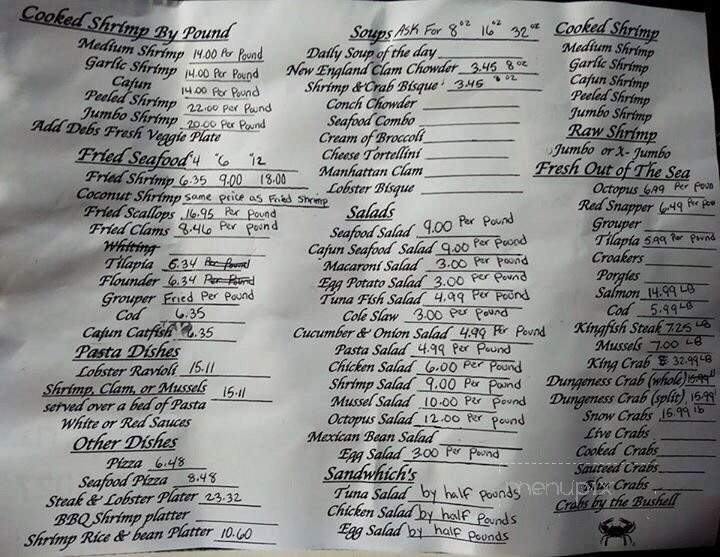 Cooked Shrimp By Pound
Medium Shrimp 14.00 Per Pound
Garlic Shrimp 14.00 Per Pound
Cafun 14.00 Per Pound
Peeled Shrimp 22.00 Per Pound
Jumbo Shrimp 20.00 Per Pound
Add Debs Fresh Veggie Plate
Fried Seafood "4 "6 "12
Fried Shrimp 6.35 9.00 18.00
Coconut Shrimp same price as Fried shrimp
Fried Scallops 16.95 Per Pound
Fried Clams 8.46 Per pound
Whiting
Tilapia 5.34 Per Pound
Flounder 6.34 Per Pound
Grouper Fried Per Pound
Cod 6.35
Cajun Catfish 6.35
Pasta Dishes
Lobster Ravioli 15.11
Shrimp, Clam, or Mussels 15.11
served over a bed of Pasta
White or Red Sauces
Other Dishes
Pizza 6.48
Seafood Pizza 8.48
Steak & Lobster Plater 23.32
BBQ Shrimp platter
Shrimp Rice & bean Platter 10.60
Soups ASK For 8 oz 16 oz 32 oz
Daily Soup of the day
New England Clam Chowder 3.45 8 oz
Shrimp & Crab Bisque 3.45 8 oz
Conch Chowder
Seafood Combo
Cream of Broccoli
Cheese Tortellini
Manhattan Clam
Lobster Bisque
Salads
Seafood Salad 9.00 Per Pound
Cajun Seafood Salad 9.00 Per Pound
Macaroni Salad 3.00 Per Pound
Egg Potato Salad 3.00 Per Pound
Tuna Fish Salad 4.99 Per Pound
Cole Slaw 3.00 Per Pound
Cucumber & Onion Salad 4.99 Per Pound
Pasta Salad 4.99 Per Pound
Chicken Salad 6.00 Per Pound
Shrimp Salad 9.00 Per Pound
Mussel Salad 10.00 Per Pound
Octopus Salad 12.00 Per Pound
Mexican Bean Salad
Egg Salad 3.00 Per Pound
Sandwhich's
Tuna Salad by half Pounds
Chicken Salad by half Pounds
Egg Salad by half Pounds
Cooked Shrimp
Medium Shrimp
Garlic Shrimp
Cajun Shrimp
Peeled Shrimp
Jumbo Shrimp
Raw Shrimp
Jumbo or X- Jumbo
Fresh Out of The Sea
Octopus 6.99 Per Poun
Red Snapper 6.49 Per Pou
Grouper
Tilapia 5.99 Per Pound
Croakers
Porgies
Salmon 14.99 LB
Cod 5.99 LB
Kingfish Steak 7.25 LB
Mussels 7.00 LB
King Crab 32.99 LB
Dungeness Crab (whole) 15.99
Dungeness Crab (split) 15.99
Snow Crabs 15.99 lb
Live Crabs
Cooked Crabs
Sauteed Crabs
She Crabs
Crabs by the Bushell
menupix